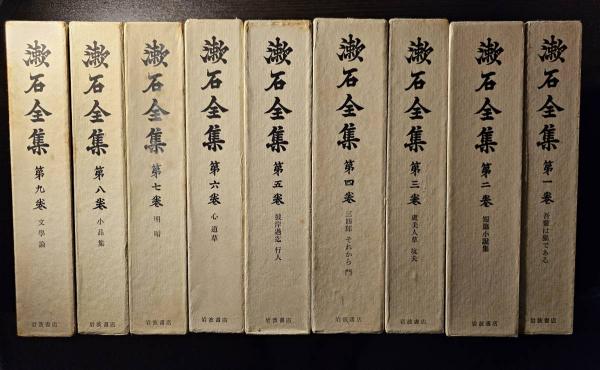 漱石全集
第一卷
吾輩は猫である
岩波書店
漱石全集
第二卷
短篇小說集
岩波書店
漱石全集
第三卷
虞美人草 坑夫
岩波書店
漱石全集
第四卷
三四郎 それから 門
岩波書店
漱石全集
第五卷
彼岸過迄 行人
岩波書店
漱石全集
第六卷
心 道草
岩波書店
漱石全集
第七卷
明暗
岩波書店
漱石全集
第八卷
小品集
岩波書店
漱石全集
第九卷
文學論
岩波書店